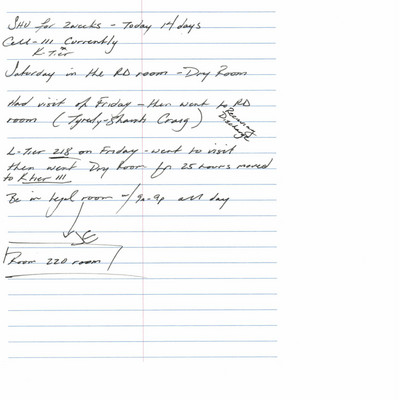 SHU for 2weeks - Today 14 days
Cell-111 Currently
K-Tier
Saturday in the RD room - Dry Room
Had visit of Friday - then went to RD
room (
Receiving
Discharge
L-Tier 218 on Friday - went to visit
then went Dry Room for 25 hours moved
to K tier 111
Be in legal room - 9a-9p all day
Room 220 room